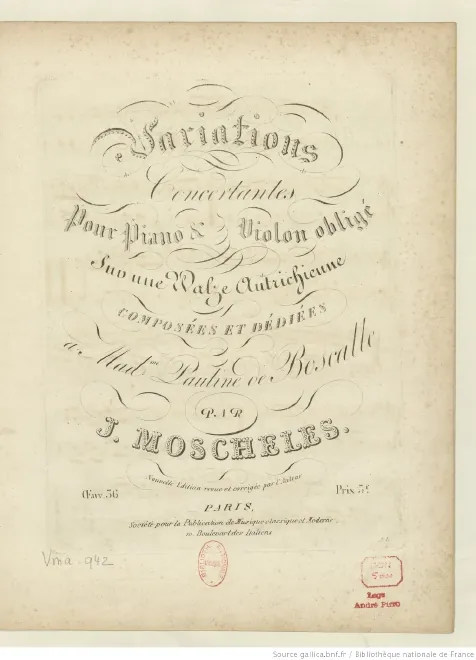 Variations
Concertantes
Pour Piano & Violon obligé
Sur une Walze Autrichienne
COMPOSÉES ET DÉDIÉES
a Mad.me Pauline de Boscallo
PAR
J. MOSCHELES.
Nouvelle Edition revue et corrigée par l'Auteur
Œuv. 36
Prix 5f
PARIS,
Société pour la Publication de Musique classique et Moderne,
Boulevart des Italiens
Vma. 942
Legs
André Pirro
Source gallica.bnf.fr / Bibliothèque nationale de France